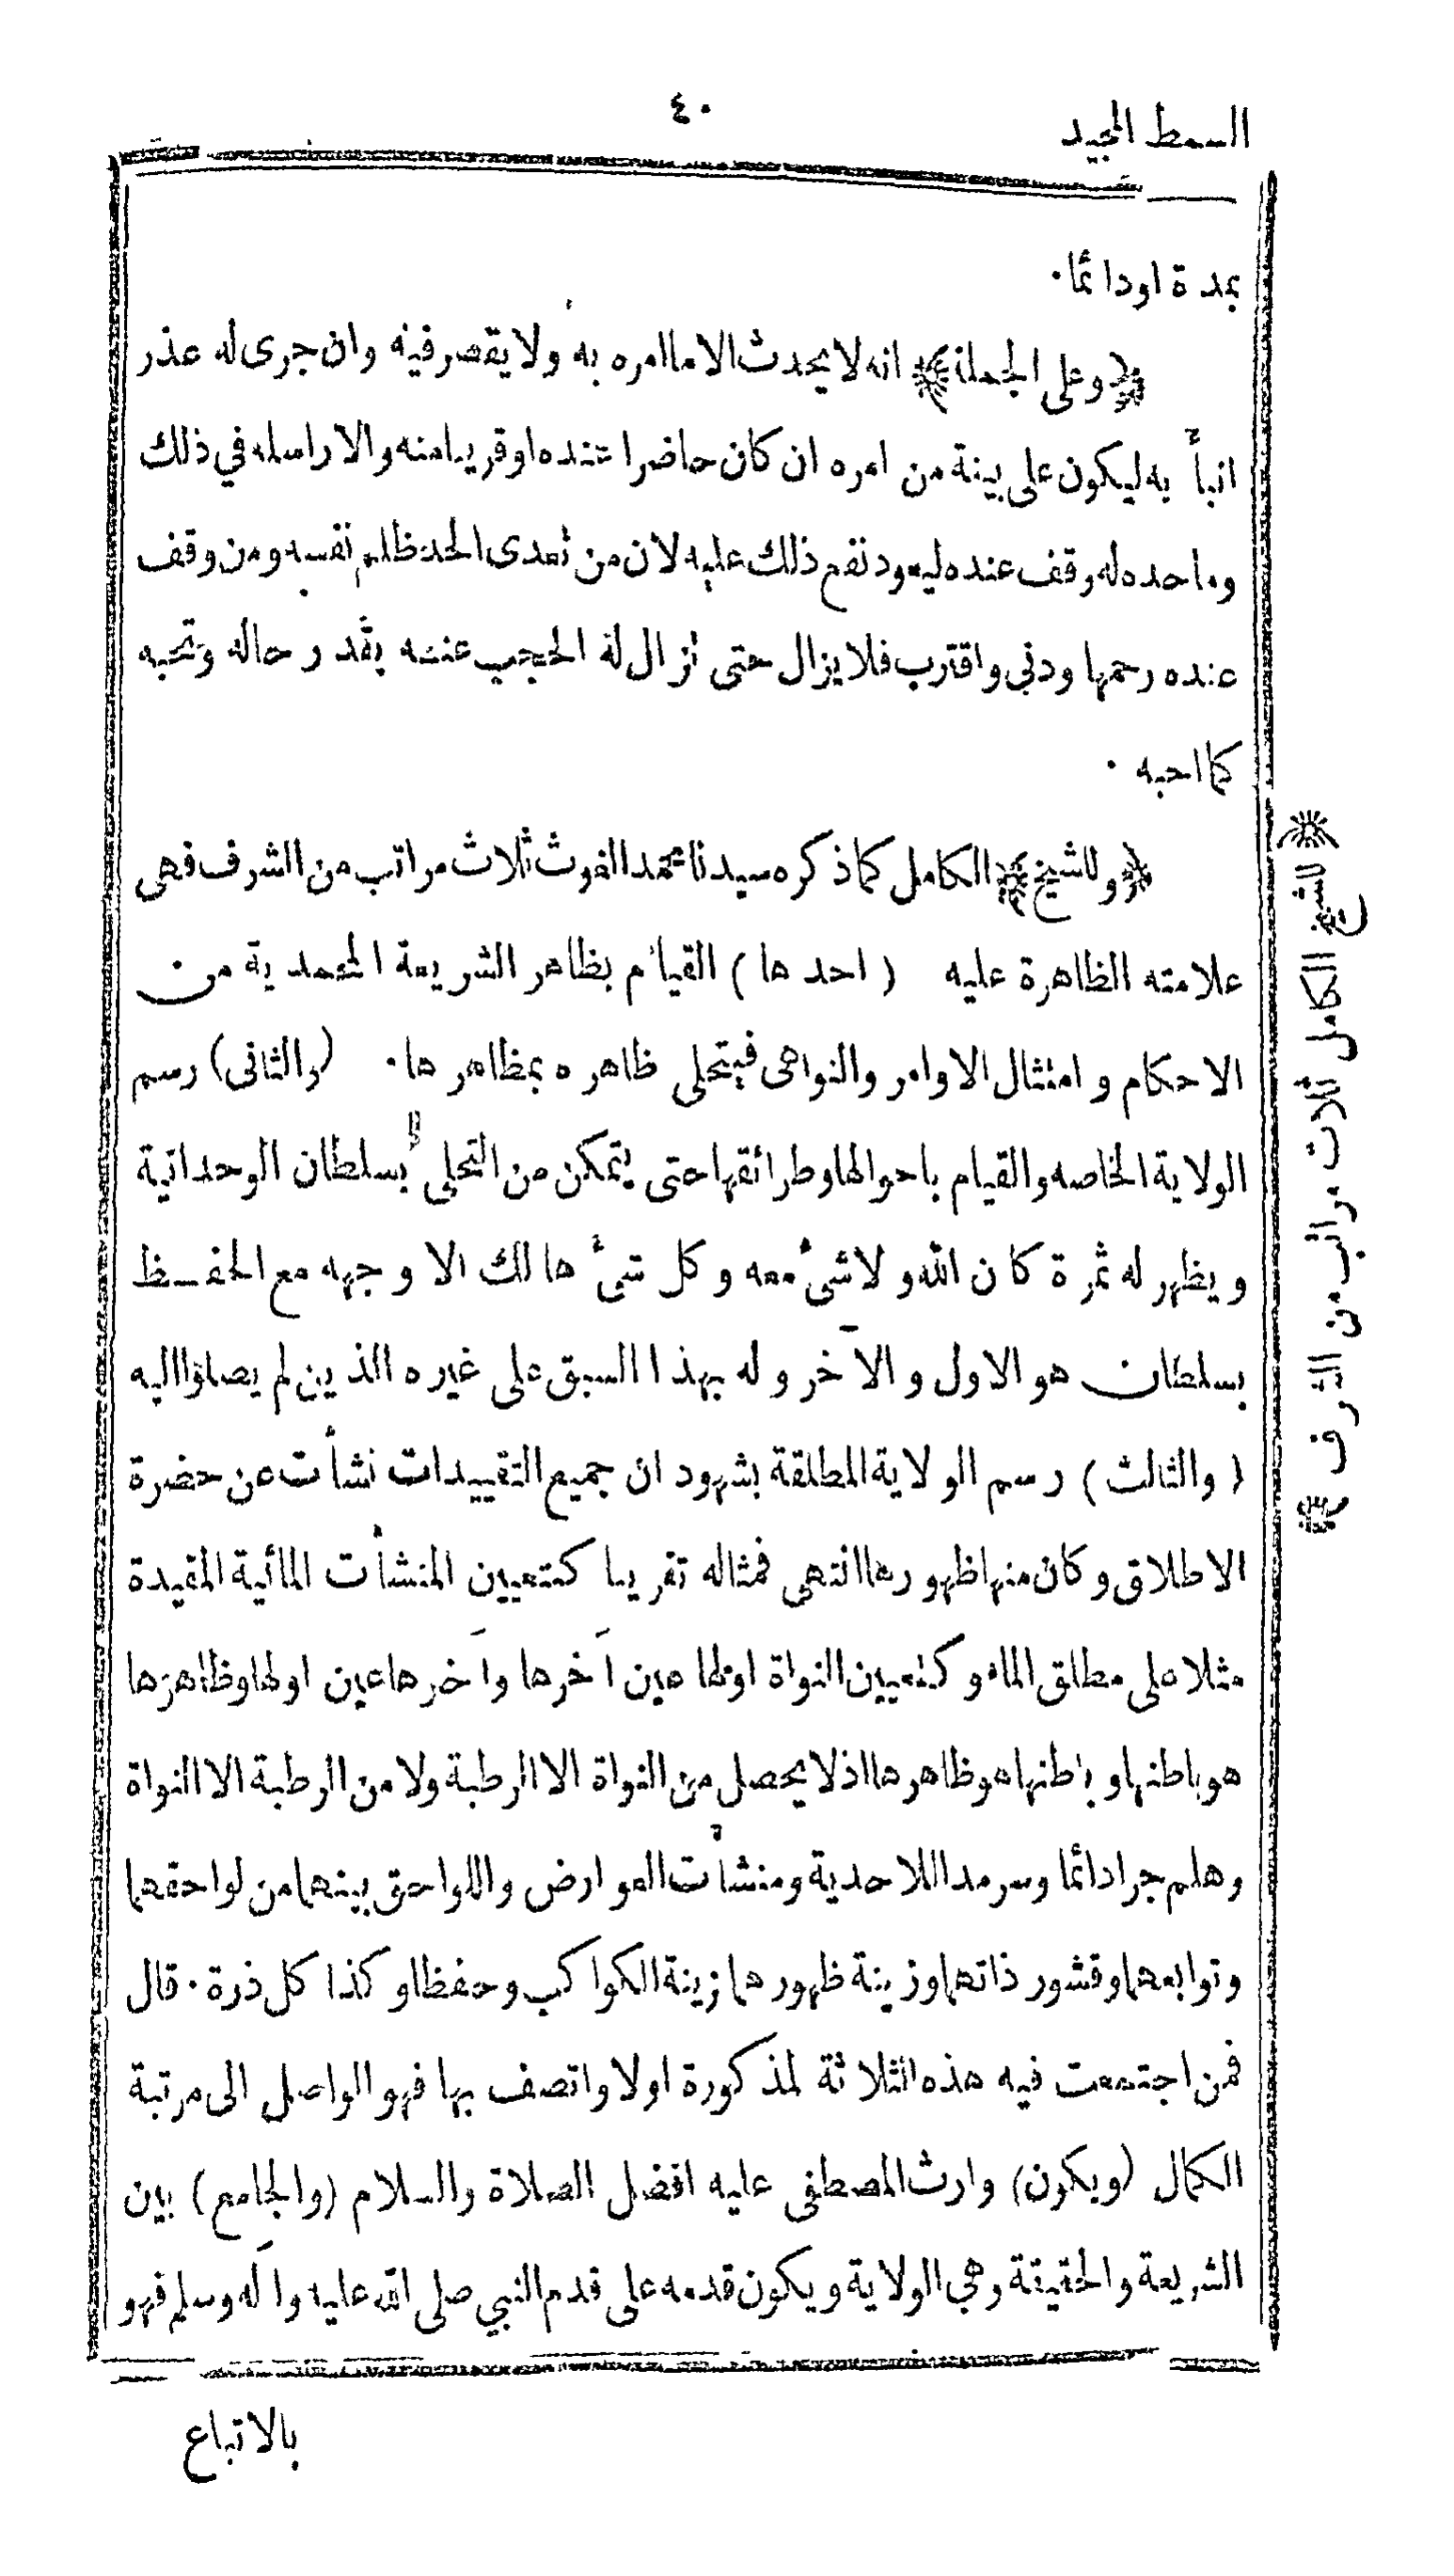 السمط المجيد
٤٠
بمدة اودائما·
﴿وعلى الجملة﴾ انه لا يحدث الا ما امره به ولا يقصر فيه وان جرى له عذر
انبأ به ليكون على بينة من امره ان كان حاضرا عنده او قريبا منه والا راسله في ذلك
وما حده له وقف عنده ليعود نفع ذلك عليه لان من تعدى الحد ظلم نفسه ومن وقف
عنده رحمها ودنى واقترب فلا يزال حتى تزال له الحجب عنه بقدر حاله وتحبه
كما احبه ·
﴿وللشيخ﴾ الكامل كما ذكره سيدنا محمد الغوث ثلاث مراتب من الشرف فهى
علامته الظاهرة عليه ( احدها ) القيام بظاهر الشريعة المحمدية من
الاحكام و امتثال الاوامر والنواهى فيتحلى ظاهره بمظاهرها· (والثانى) رسم
الولاية الخاصه والقيام باحوالها وطرائقها حتى يتمكن من التحلى بسلطان الوحدانية
ويظهر له ثمرة كان الله ولا شئ معه وكل شئ هالك الا وجهه مع الحفظ
بسلطان هو الاول والآخر وله بهذا السبق على غيره الذين لم يصلوا اليه
( والثالث ) رسم الولاية المطلقة بشهود ان جميع التقييدات نشأت عن حضرة
الاطلاق وكان منها ظهورها انتهى فمثاله تقريبا كتعيين المنشأت المائية المقيدة
مثلا على مطلق الماء وكتعيين النواة اولها عين آخرها وآخرها عين اولها وظاهرها
هو باطنها و باطنها هو ظاهرها اذ لا يحصل من النواة الا الرطبة ولا من الرطبة الا النواة
وهلم جرا دائما وسرمدا للاحدية ومنشأت العوارض واللواحق بينهما من لواحقهما
وتوابعهما وقشور ذاتهما وزينة ظهورهما زينة الكواكب وحفظا وكذا كل ذرة· قال
فمن اجتمعت فيه هذه الثلاثة لمذكورة اولا واتصف بها فهو الواصل الى مرتبة
الكمال (ويكون) وارث المصطفى عليه افضل الصلاة والسلام (والجامع) بين
الشريعة والحقيقة وهي الولاية ويكون قدمه على قدم النبي صلى الله عليه وآله وسلم فهو
بالاتباع
﴿للشيخ الكامل ثلاث مراتب من الشرف﴾